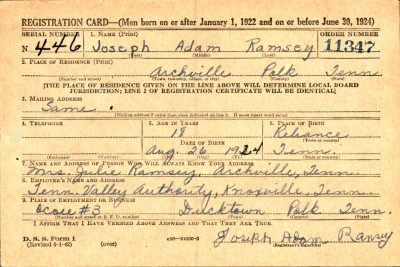 REGISTRATION CARD—(Men born on or after January 1, 1922 and on or before June 30, 1924)
SERIAL NUMBER 1. NAME (Print) ORDER NUMBER
N 446 Joseph Adam Ramsey 11347
(First) (Middle) (Last)
2. PLACE OF RESIDENCE (Print)
Archville Polk Tenn.
(Number and street) (Town, township, village, or city) (County) (State)
[THE PLACE OF RESIDENCE GIVEN ON THE LINE ABOVE WILL DETERMINE LOCAL BOARD
JURISDICTION; LINE 2 OF REGISTRATION CERTIFICATE WILL BE IDENTICAL]
3. MAILING ADDRESS
Same
[Mailing address if other than place indicated on line 2. If same insert word same]
4. TELEPHONE 5. AGE IN YEARS 6. PLACE OF BIRTH
18 Reliance
DATE OF BIRTH (Town or county)
Aug. 26 1924 Tenn.
(Exchange) (Number) (Mo.) (Day) (Yr.) (State or country)
7. NAME AND ADDRESS OF PERSON WHO WILL ALWAYS KNOW YOUR ADDRESS
Mrs. Julie Ramsey, Archville, Tenn.
8. EMPLOYER'S NAME AND ADDRESS
Tenn. Valley Authority, Knoxville, Tenn.
9. PLACE OF EMPLOYMENT OR BUSINESS
Ocoee #3 Ducktown Polk Tenn.
(Number and street or R. F. D. number) (Town) (County) (State)
I AFFIRM THAT I HAVE VERIFIED ABOVE ANSWERS AND THAT THEY ARE TRUE.
D. S. S. Form 1
(Revised 6-1-42) (over) Joseph Adam Ramsy
(Registrant's signature)